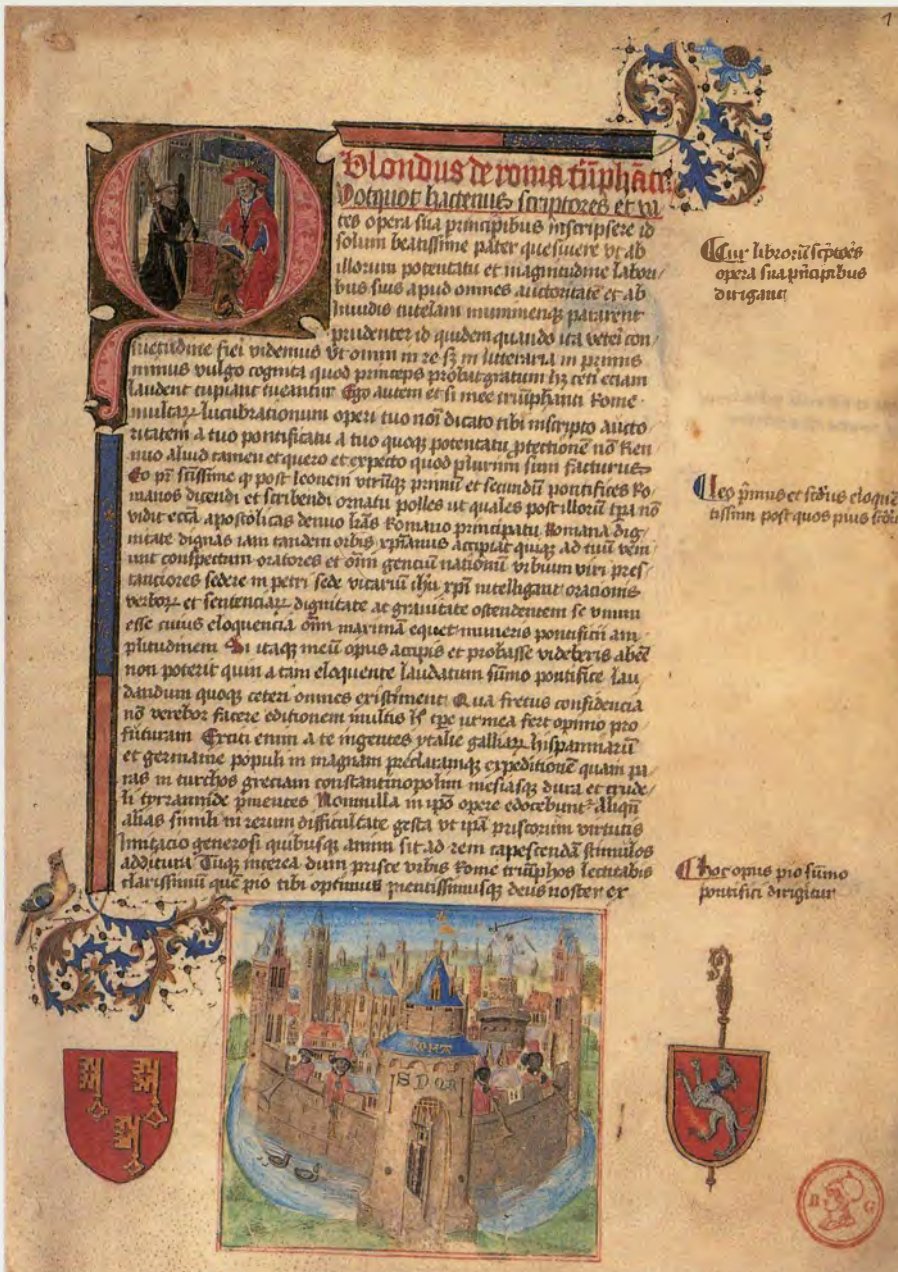 1
Blondus de roma triũphãte
Quotquot hactenus scriptores et va
tes opera sua principibus inscripsere id
solum beatissime pater quesiuere vt ab
illorum potentatu et magnitudine labori
bus suis apud omnes auctoritatẽ et ab
inuidis tutelam munimenq; pararent
prudenter id quidem quando ita veteri con/
suetudine fieri videmus vt omni in re sȝ in litteraria in primis
minus vulgo cognita quod princeps probat gratum hȝ ceti eciam
laudent cupiant tueantur Ego autem et si mee triũphanti Rome
multaꝝ lucubrationum operi tuo noĩ dicato tibi inscripto aucto
ritatem a tuo pontificatu a tuo quoq; potentatu ptectionẽ nõ Ren
nuo aliud tamen et quero et expecto quod plurim sum facturus
Eo pr̃ sc̃issime ꝙ post leonem vtrũq; primũ et secundũ pontifices Ro
manos dicendi et scribendi ornatu polles ut quales post illorũ tp̃a nõ
vidit eciã apostolicas denuo lr̃as Romano principatu Romana dig
nitate dignas iam tandem orbis xp̃ianus accipiat quiq; ad tuũ veni
unt conspectum oratores et om̃i genciũ nationũ vrbium viri pres/
tanciores sedere in petri sede vicariũ ihũ xp̃i intelligant orationis
verboꝝ et sentenciaꝝ dignitate ac grauitate ostendentem se vnum
esse cuius eloquencia om̃i maximã equet muneris pontificii am
plitudinem Si itaq; meũ opus accipis et probasse videberis abeẽ
non poterit quin a tam eloquente laudatum sũmo pontifice lau/
dandum quoq; ceteri omnes existiment Qua fretus confidencia
nõ verebor facere editionem multis tpe ut mea fert opinio pro
futuram Exciti enim a te ingentes ytalie galliaꝝ hispanniarũ
et germanie populi in magnam preclaramq; expeditionẽ quam pa
ras in turchos greciam constantinopolim mesiasq; dura et crude/
li tyrannide p̃mentes Nonnulla in ip̃o opere edocebunt Aliqñ
alias simili in rerum difficultate gesta vt ip̃a priscorum virtutis
Imitacio generosi quibusq; animi sit ad rem capescendã stimulos
additura Tuq; interea dum prisce vrbis Rome triũphos lectitabis
clarissimũ quẽ pio tibi optimus pientissimusq; deus noster ex
Cur librorũ sc̃ptores
opera sua pñcipibus
dirigant
Leo p̃imus et sc̃dus eloquẽ
tissimi post quos pius sc̃dus
hoc opus pio sũmo
pontifici dirigitur
ROMA
SPQR
B G